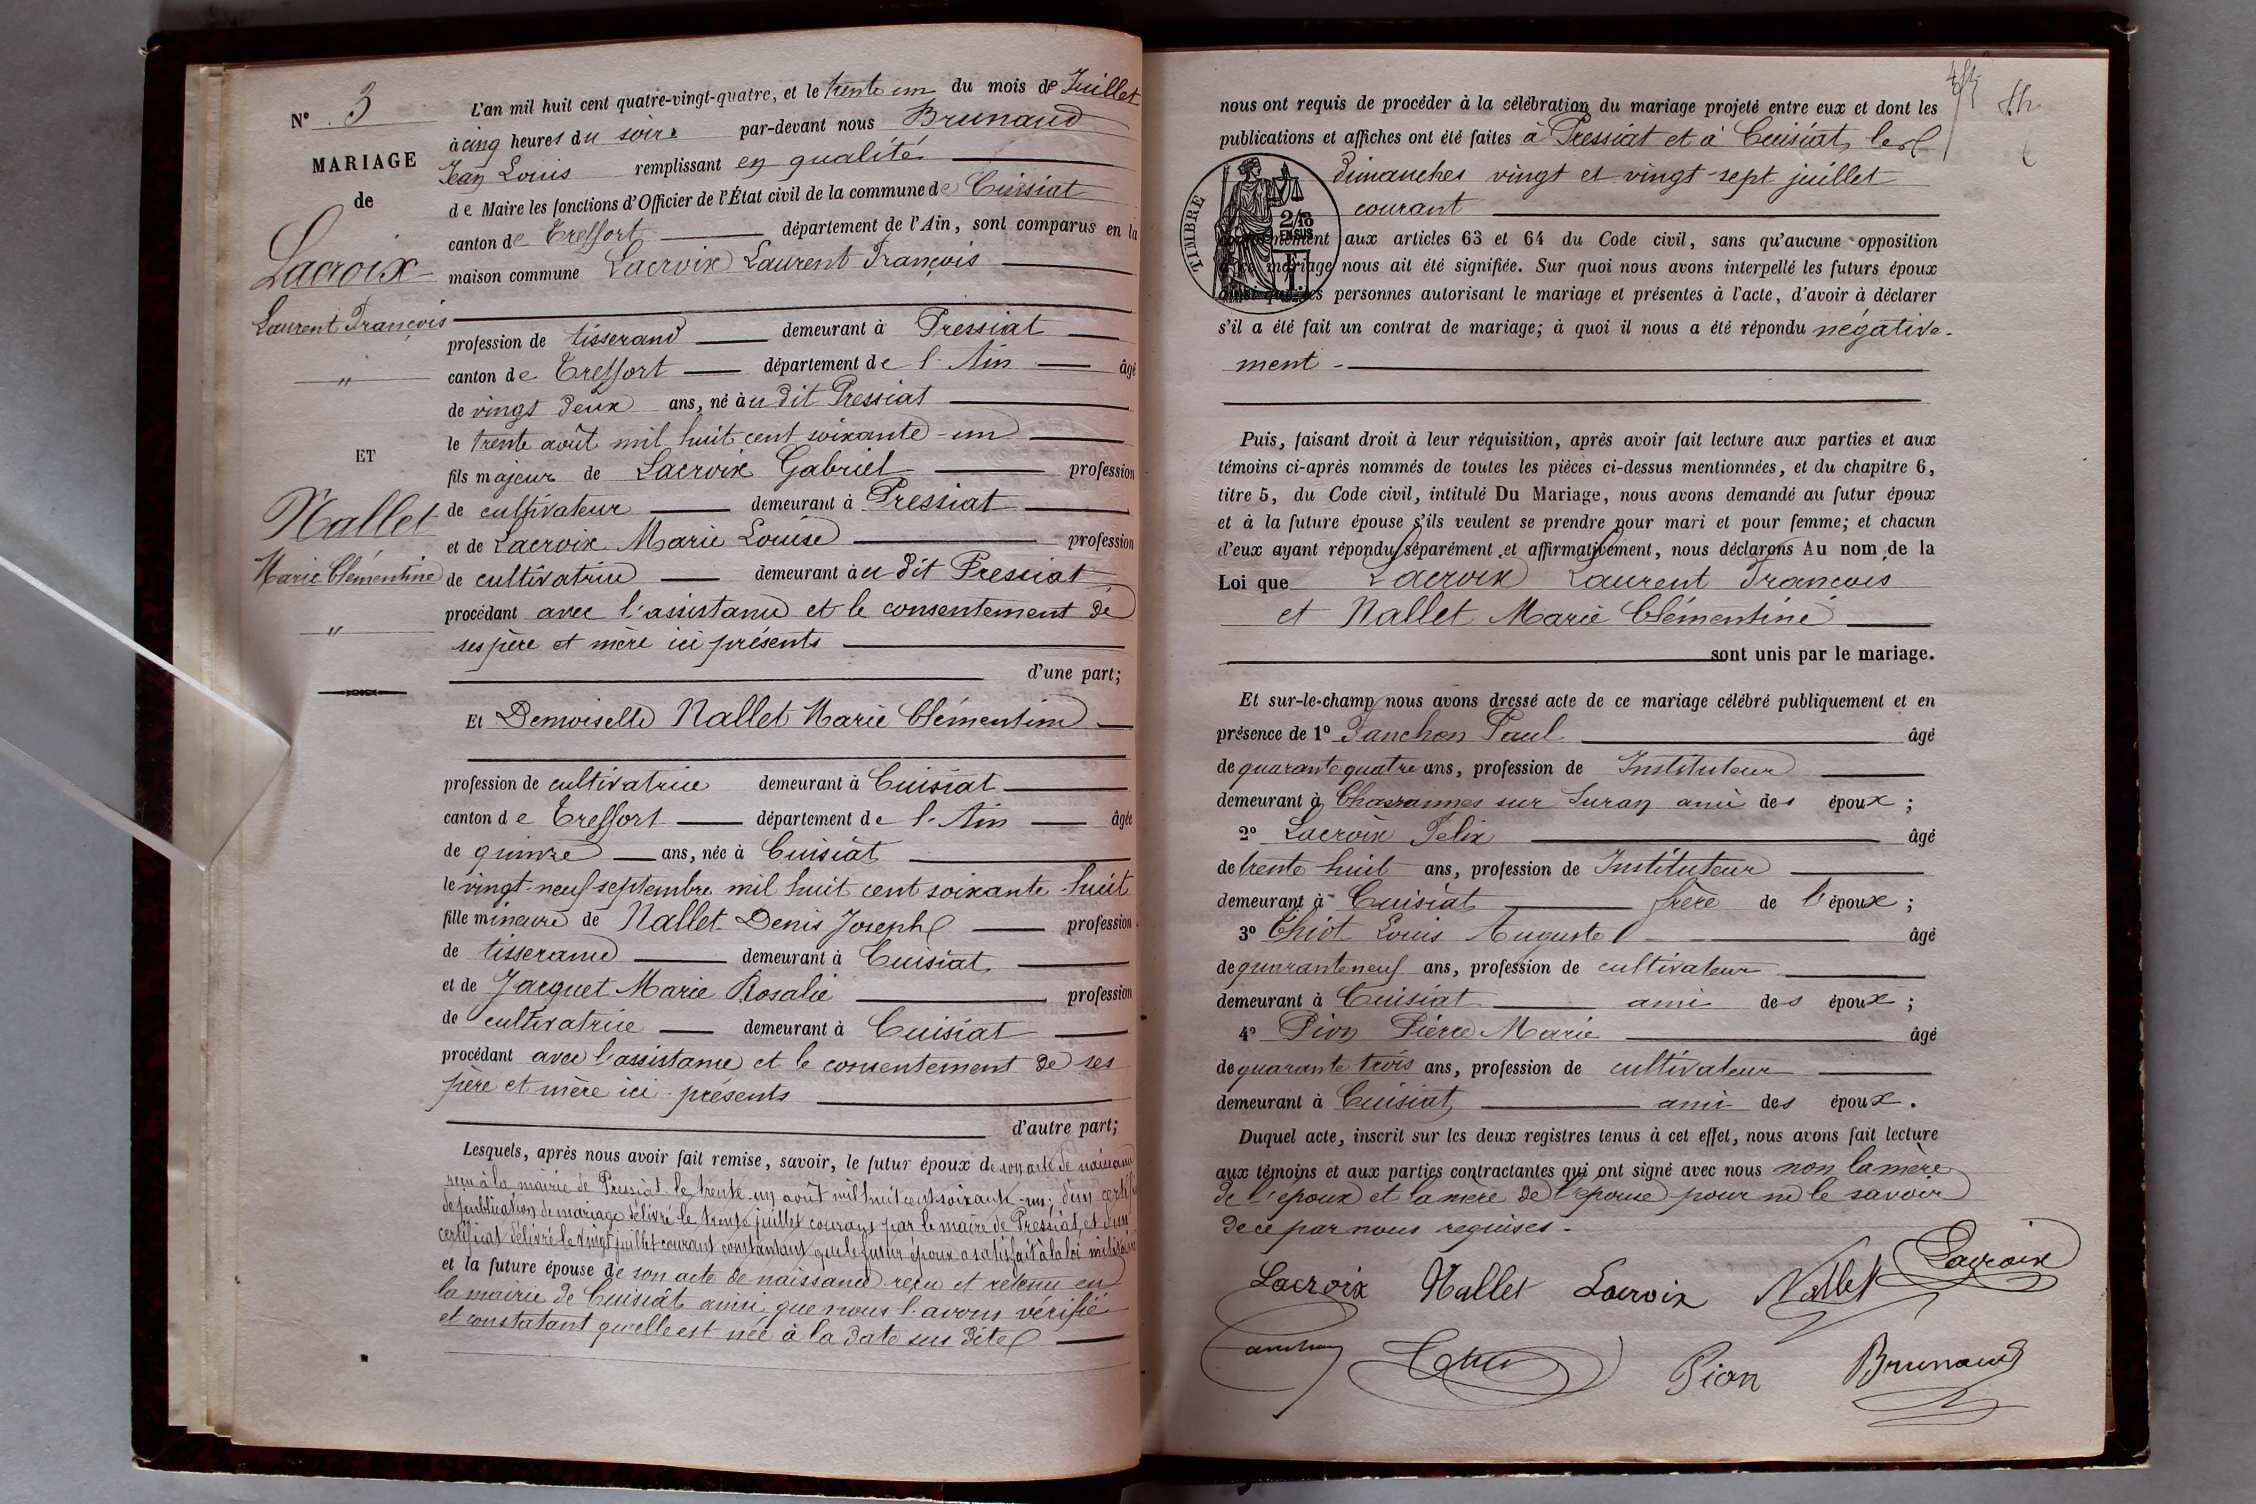 N° 3
MARIAGE
de
Lacroix
Laurent François
"
ET
Nallet
Marie Clémentine
"
L'an mil huit cent quatre-vingt-quatre, et le trente un du mois de Juillet
à cinq heures du soir par-devant nous Brunaud
Jean Louis remplissant en qualité
de Maire les fonctions d'Officier de l'État civil de la commune de Cuisiat
canton de Treffort département de l'Ain, sont comparus en la
maison commune Lacroix Laurent François
profession de tisserand demeurant à Pressiat
canton de Treffort département de l'Ain âgé
de vingt deux ans, né àu dit Pressiat
le trente août mil huit cent soixante-un
fils majeur de Lacroix Gabriel profession
de cultivateur demeurant à Pressiat
et de Lacroix Marie Louise profession
de cultivatrice demeurant àu dit Pressiat
procédant avec l'assistance et le consentement de
ses père et mère ici présents
d'une part;
Et Demoiselle Nallet Marie Clémentine
profession de cultivatrice demeurant à Cuisiat
canton de Treffort département de l'Ain âgée
de quinze ans, née à Cuisiat
le vingt-neuf septembre mil huit cent soixante-huit
fille mineure de Nallet Denis Joseph profession
de tisserand demeurant à Cuisiat
et de Jacquet Marie Rosalie profession
de cultivatrice demeurant à Cuisiat
procédant avec l'assistance et le consentement de ses
père et mère ici présents
d'autre part;
Lesquels, après nous avoir fait remise, savoir, le futur époux de son acte de naissance
reçu à la mairie de Pressiat le trente un août mil huit cent soixante-un; d'un certificat
de publication de mariage délivré le trente juillet courant par le maire de Pressiat, et d'un
certificat délivré le vingt juillet courant constatant que le futur époux a satisfait à la loi militaire
et la future épouse de son acte de naissance reçu et retenu en
la mairie de Cuisiat ainsi que nous l'avons vérifié
et constatant qu'elle est née à la date sus dite
nous ont requis de procéder à la célébration du mariage projeté entre eux et dont les
publications et affiches ont été faites à Pressiat et à Cuisiat, les
dimanches vingt et vingt-sept juillet
courant
TIMBRE
2/10 EN SUS
conformément aux articles 63 et 64 du Code civil, sans qu'aucune opposition
audit mariage nous ait été signifiée. Sur quoi nous avons interpellé les futurs époux
ainsi que les personnes autorisant le mariage et présentes à l'acte, d'avoir à déclarer
s'il a été fait un contrat de mariage; à quoi il nous a été répondu négative-
ment
Puis, faisant droit à leur réquisition, après avoir fait lecture aux parties et aux
témoins ci-après nommés de toutes les pièces ci-dessus mentionnées, et du chapitre 6,
titre 5, du Code civil, intitulé Du Mariage, nous avons demandé au futur époux
et à la future épouse s'ils veulent se prendre pour mari et pour femme; et chacun
d'eux ayant répondu séparément et affirmativement, nous déclarons Au nom de la
Loi que Lacroix Laurent François
et Nallet Marie Clémentine
sont unis par le mariage.
Et sur-le-champ nous avons dressé acte de ce mariage célébré publiquement et en
présence de 1° Panchon Paul âgé
de quarante quatre ans, profession de Instituteur
demeurant à sur Suran ami des époux;
2° Lacroix Felix âgé
de trente huit ans, profession de Instituteur
demeurant à Cuisiat frère de l'époux;
3° Thiot Louis Auguste âgé
de quarante neuf ans, profession de cultivateur
demeurant à Cuisiat ami des époux;
4° Pion Pierre Marie âgé
de quarante trois ans, profession de cultivateur
demeurant à Cuisiat ami des époux.
Duquel acte, inscrit sur les deux registres tenus à cet effet, nous avons fait lecture
aux témoins et aux parties contractantes qui ont signé avec nous non la mère
de l'époux et la mère de l'épouse pour ne le savoir
de ce par nous requises.
Lacroix Nallet Lacroix Nallet Lacroix
Pion Brunaud